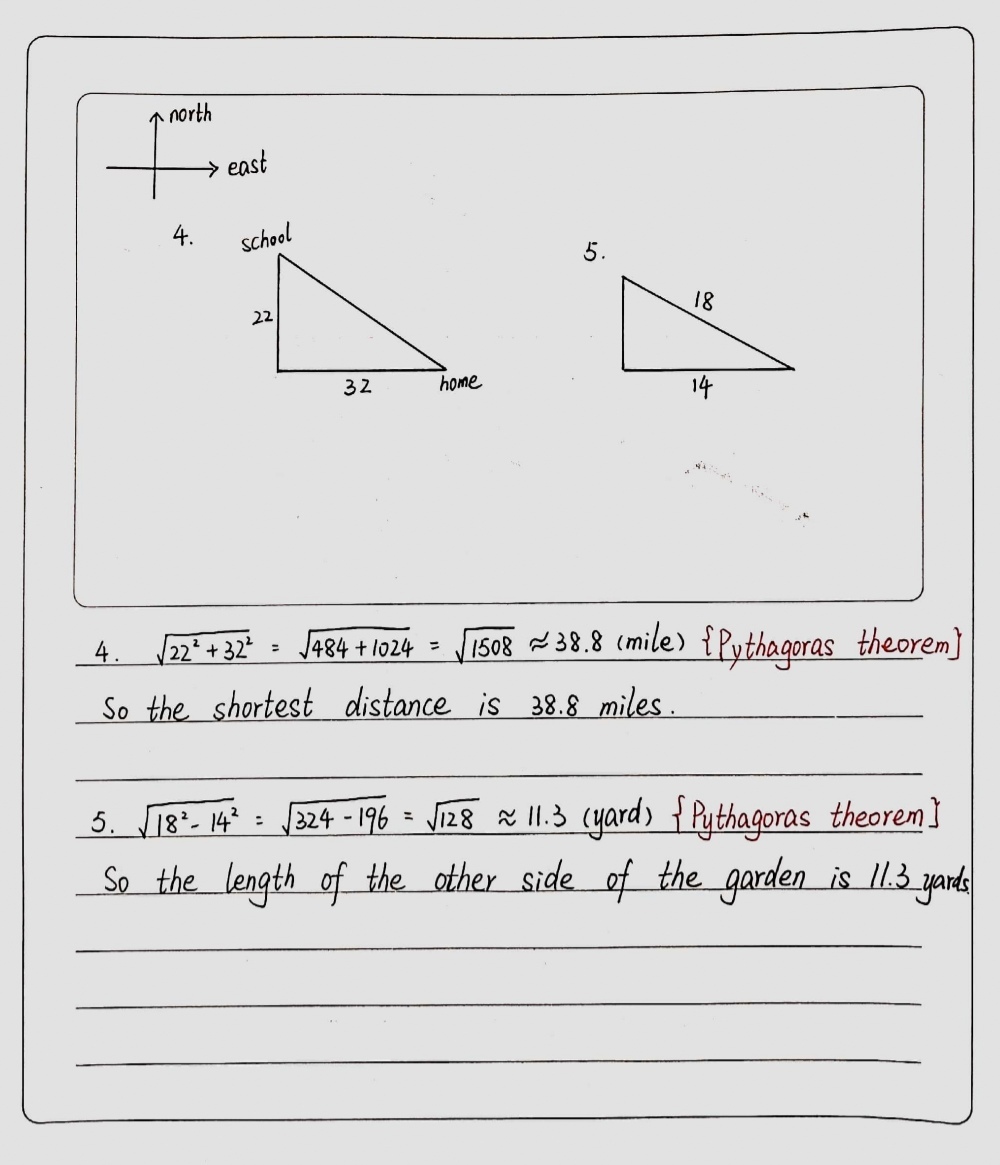 north
east
4.
school
22
32
home
5.
18
14
4. √22² + 32² = √484 + 1024 = √1508 ≈ 38.8 (mile) {Pythagoras theorem}
So the shortest distance is 38.8 miles.
5. √18² - 14² = √324 - 196 = √128 ≈ 11.3 (yard) {Pythagoras theorem}
So the length of the other side of the garden is 11.3 yards.